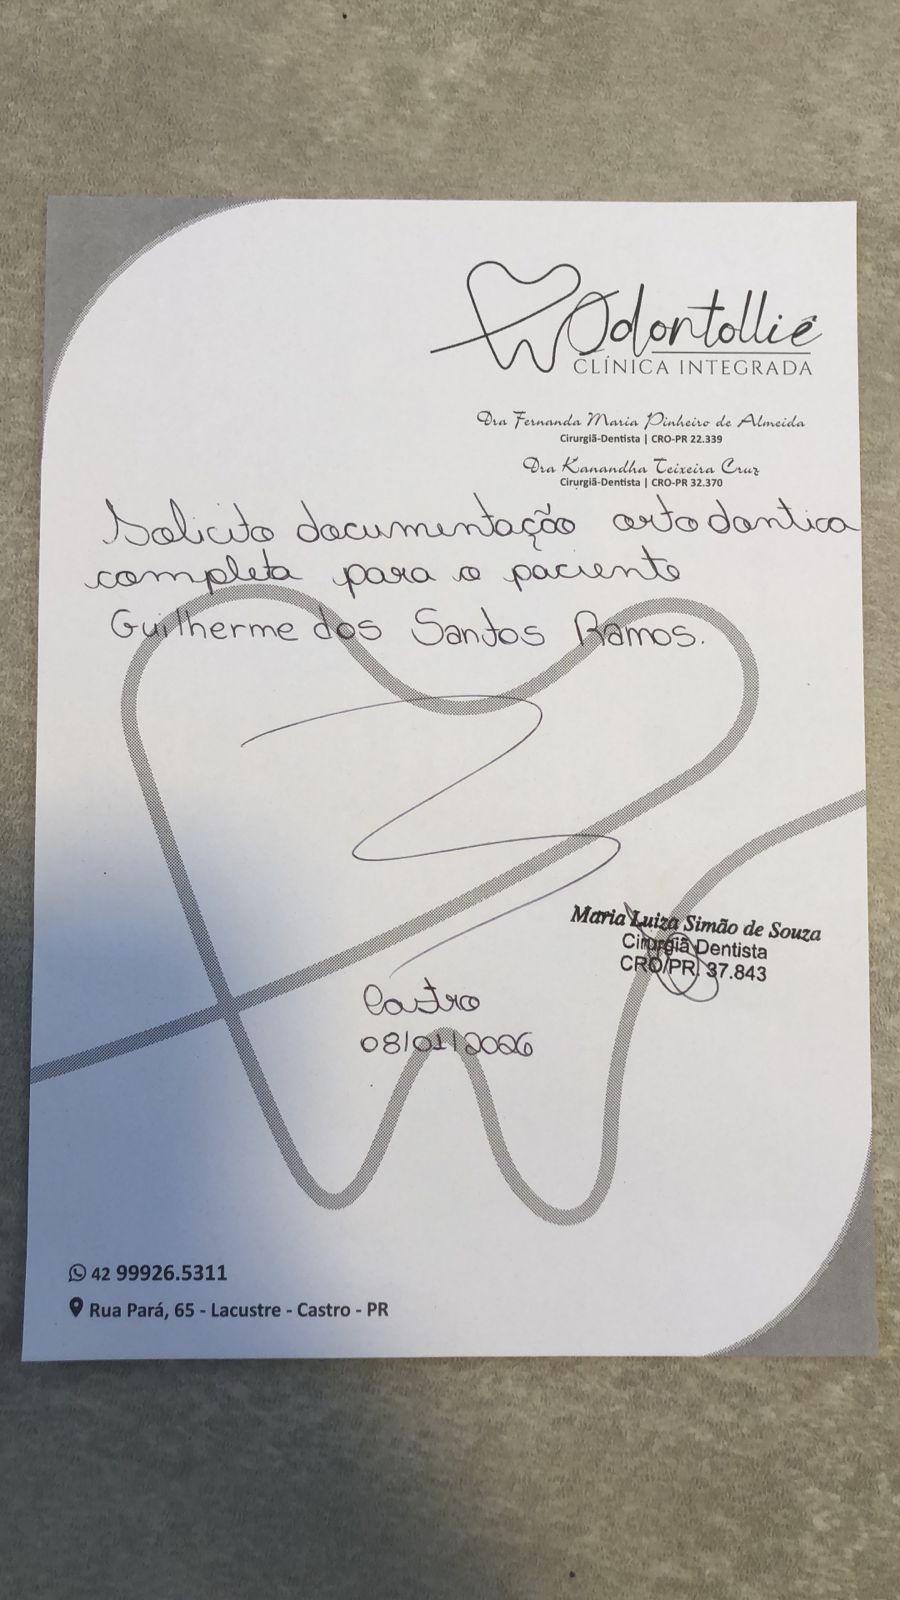 Odontolliê
CLÍNICA INTEGRADA
Dra Fernanda Maria Pinheiro de Almeida
Cirurgiã-Dentista | CRO-PR 22.339
Dra Kanandha Teixeira Cruz
Cirurgiã-Dentista | CRO-PR 32.370
Solicito documentação ortodontica
completa para o paciente
Guilherme dos Santos Ramos.
Maria Luiza Simão de Souza
Cirurgiã Dentista
CRO/PR 37.843
Castro
08/01/2026
42 99926.5311
Rua Pará, 65 - Lacustre - Castro - PR